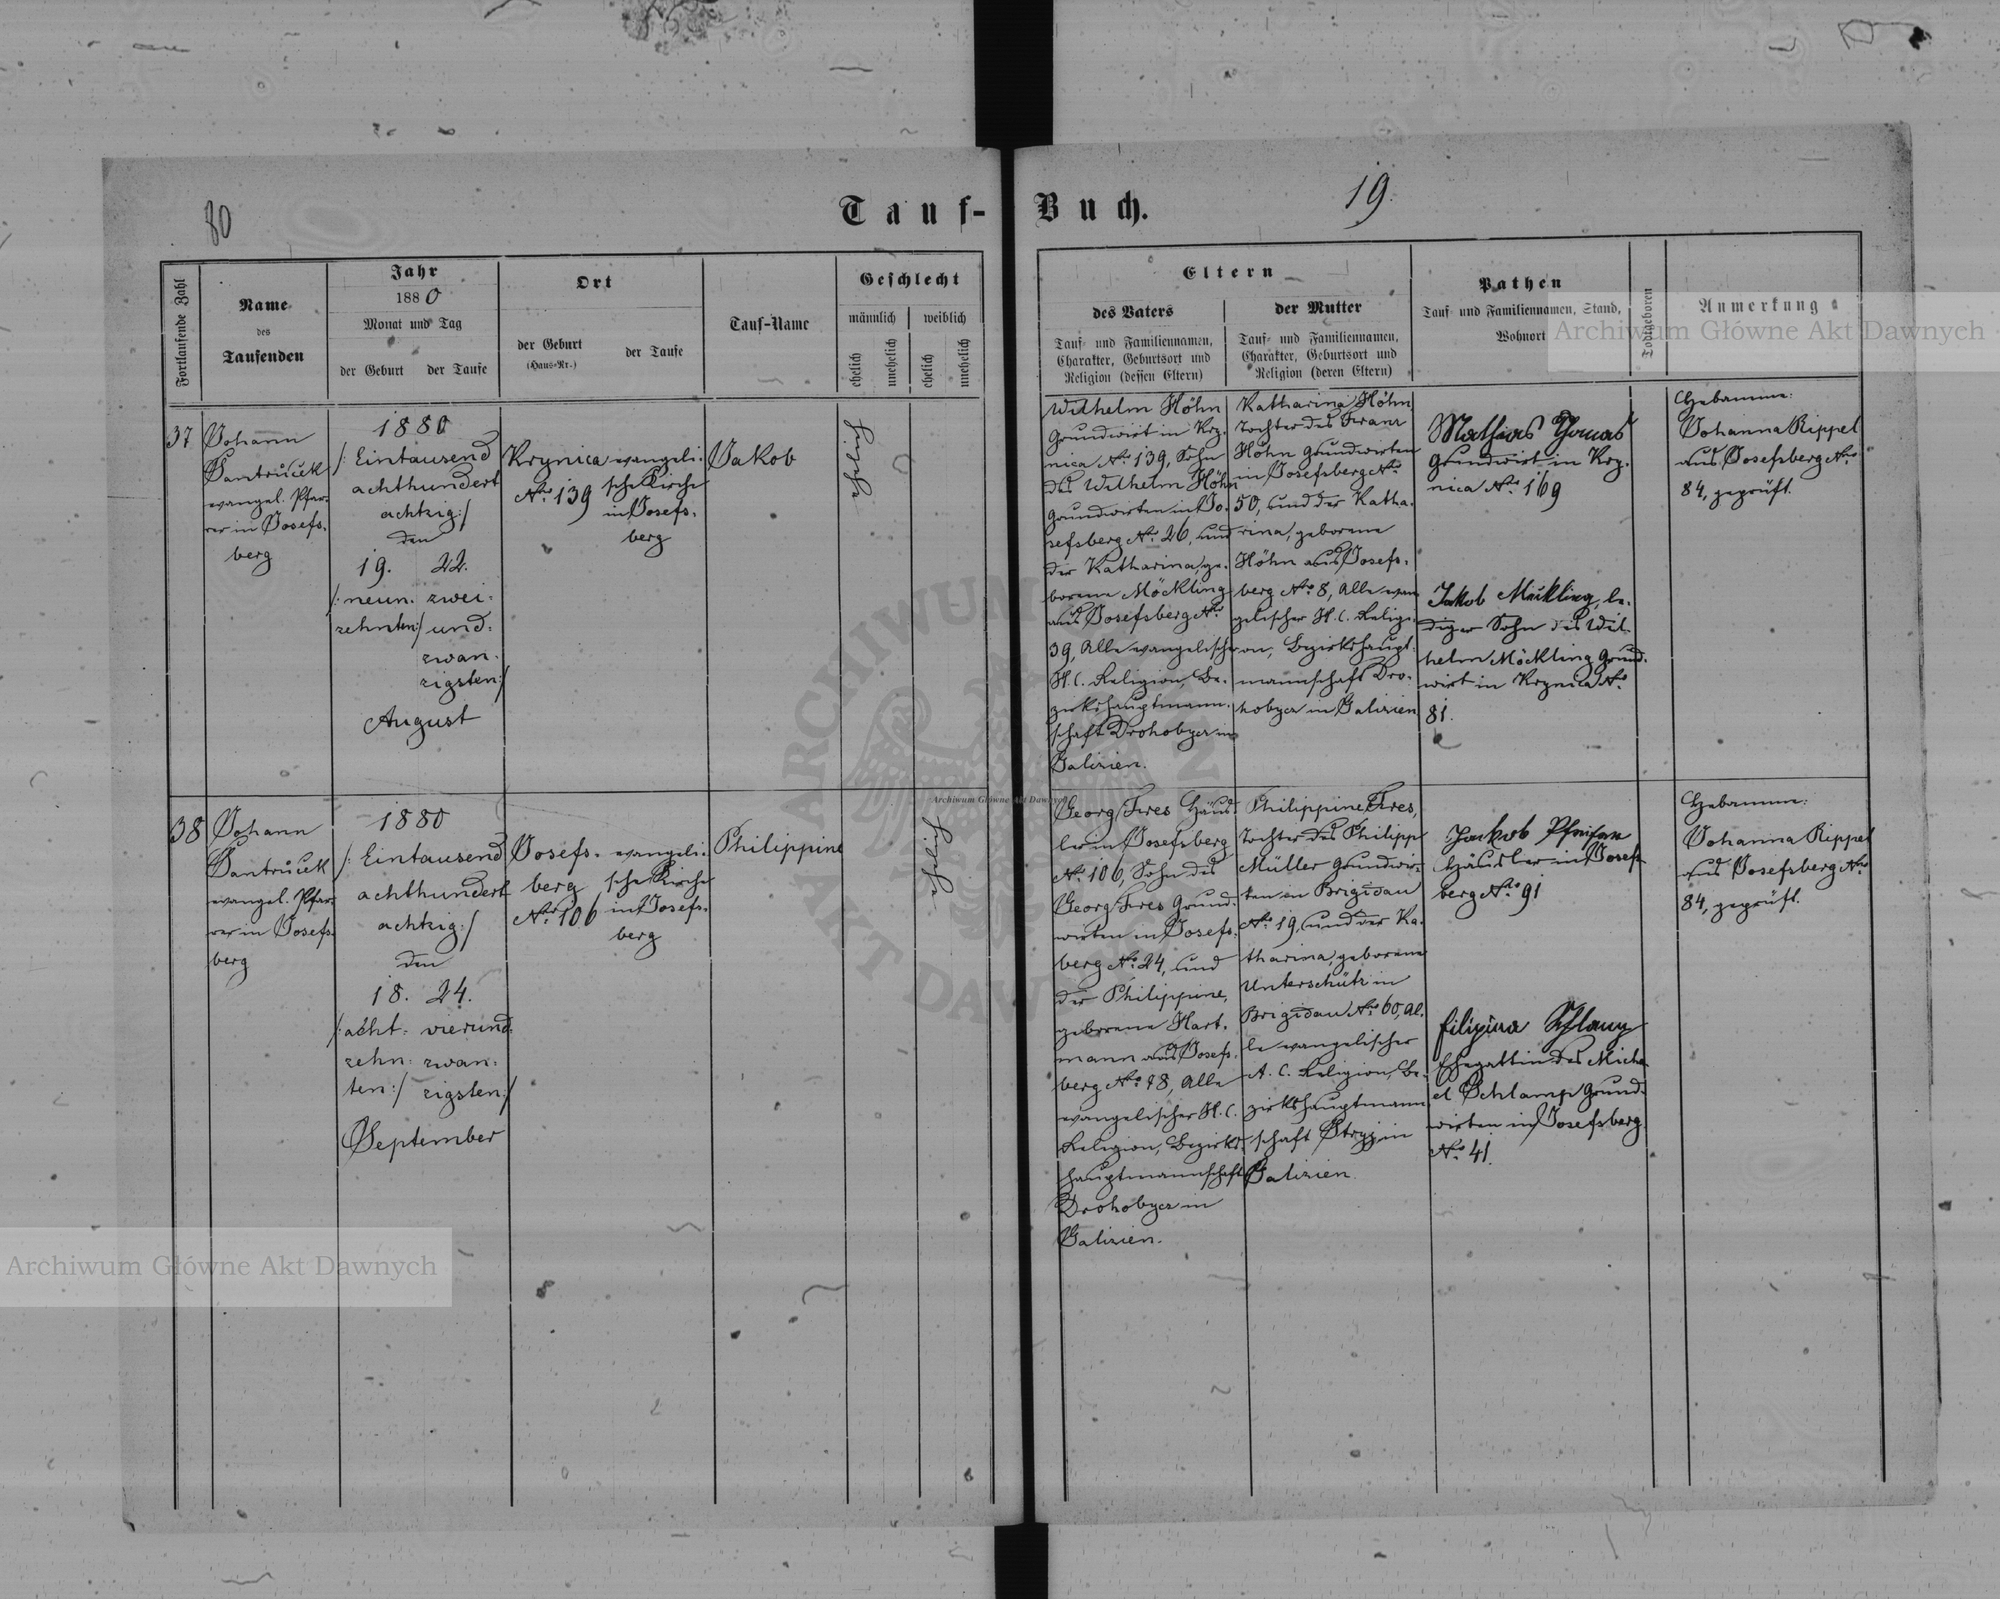 80
Tauf-Buch.
19.
Fortlaufende Zahl
Name
des
Taufenden
Jahr
1880
Monat und Tag
der Geburt
der Taufe
Ort
der Geburt
(Haus-Nr.)
der Taufe
Tauf-Name
Geschlecht
männlich
weiblich
ehelich
unehelich
ehelich
unehelich
Eltern
des Vaters
Tauf- und Familiennamen,
Charakter, Geburtsort und
Religion (dessen Eltern)
der Mutter
Tauf- und Familiennamen,
Charakter, Geburtsort und
Religion (deren Eltern)
Pathen
Tauf- und Familiennamen, Stand,
Wohnort
Todtgeboren
Anmerkung
37
Johann
Santrůček
evangel. Pfar-
rer in Josefs-
berg
1880
/: Eintausend
achthundert
achtzig :/
den
19. 22.
/: neun- zwei-
zehnten :/ und-
zwan-
zigsten :/
August
Krynica
Nro 139
evangeli-
sche Kirche
in Josefs-
berg
Jakob
ehelich
Wilhelm Höhn
Grundwirt in Kry-
nica Nro 139, Sohn
des Wilhelm Höhn
Grundwirten in Jo-
sefsberg Nro 26, und
der Katharina, ge-
borene Möckling
aus Josefsberg Nro
39, Alle evangelischer
H. C. Religion, Be-
zirkshauptmann-
schaft Drohobycz in
Galizien.
Katharina Höhn,
Tochter des Franz
Höhn Grundwirten
in Josefsberg Nro
50, und der Katha-
rina, geborene
Höhn aus Josefs-
berg Nro 8, Alle evan-
gelischer H. C. Religi-
on, Bezirkshaupt-
mannschaft Dro-
hobycz in Galizien
Mathias
Grundwirt in Kry-
nica Nro 169
Jakob Möckling, le-
diger Sohn des Wil-
helm Möckling Grund-
wirt in Krynica Nro
81.
Hebamme:
Johanna Rippel
aus Josefsberg Nro
84, geprüft.
38
Johann
Santrůček
evangel. Pfar-
rer in Josefs-
berg
1880
/: Eintausend
achthundert
achtzig :/
den
18. 24.
/: acht- vierund-
zehn- zwan-
ten :/ zigsten :/
September
Josefs-
berg
Nro 106
evangeli-
sche Kirche
in Josefs-
berg
Philippine
ehelich
Georg Ires Häus-
ler in Josefsberg
Nro 106, Sohn des
Georg Ires Grund-
wirten in Josefs-
berg Nro 24, und
der Philippine,
geborene Hart-
mann aus Josefs-
berg Nro 78, Alle
evangelischer H. C.
Religion, Bezirks-
hauptmannschaft
Drohobycz in
Galizien.
Philippine Ires,
Tochter des Philipp
Müller Grundwir-
ten in Brigidau
Nro 19, und der Ka-
tharina, geborene
Unterschütz in
Brigidau Nro 60, Al-
le evangelischer
A. C. Religion, Be-
zirkshauptmann-
schaft Stryj in
Galizien
Jackob Pfeifer
Häusler in Josefs-
berg Nro 91
Filipina
Ehegattin des Micha-
el Schlamp Grund-
wirten in Josefsberg
Nro 41.
Hebamme:
Johanna Rippel
aus Josefsberg Nro
84, geprüft.
Archiwum Główne Akt Dawnych
Archiwum Główne Akt Dawnych
Archiwum Główne Akt Dawnych